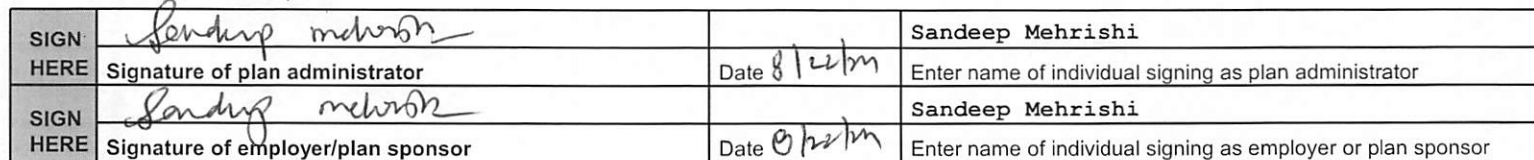 SIGN HERE Sandeep Mehrishi Sandeep Mehrishi
Signature of plan administrator Date 8/22/ Enter name of individual signing as plan administrator
SIGN HERE Sandeep Mehrishi Sandeep Mehrishi
Signature of employer/plan sponsor Date 8/22/ Enter name of individual signing as employer or plan sponsor